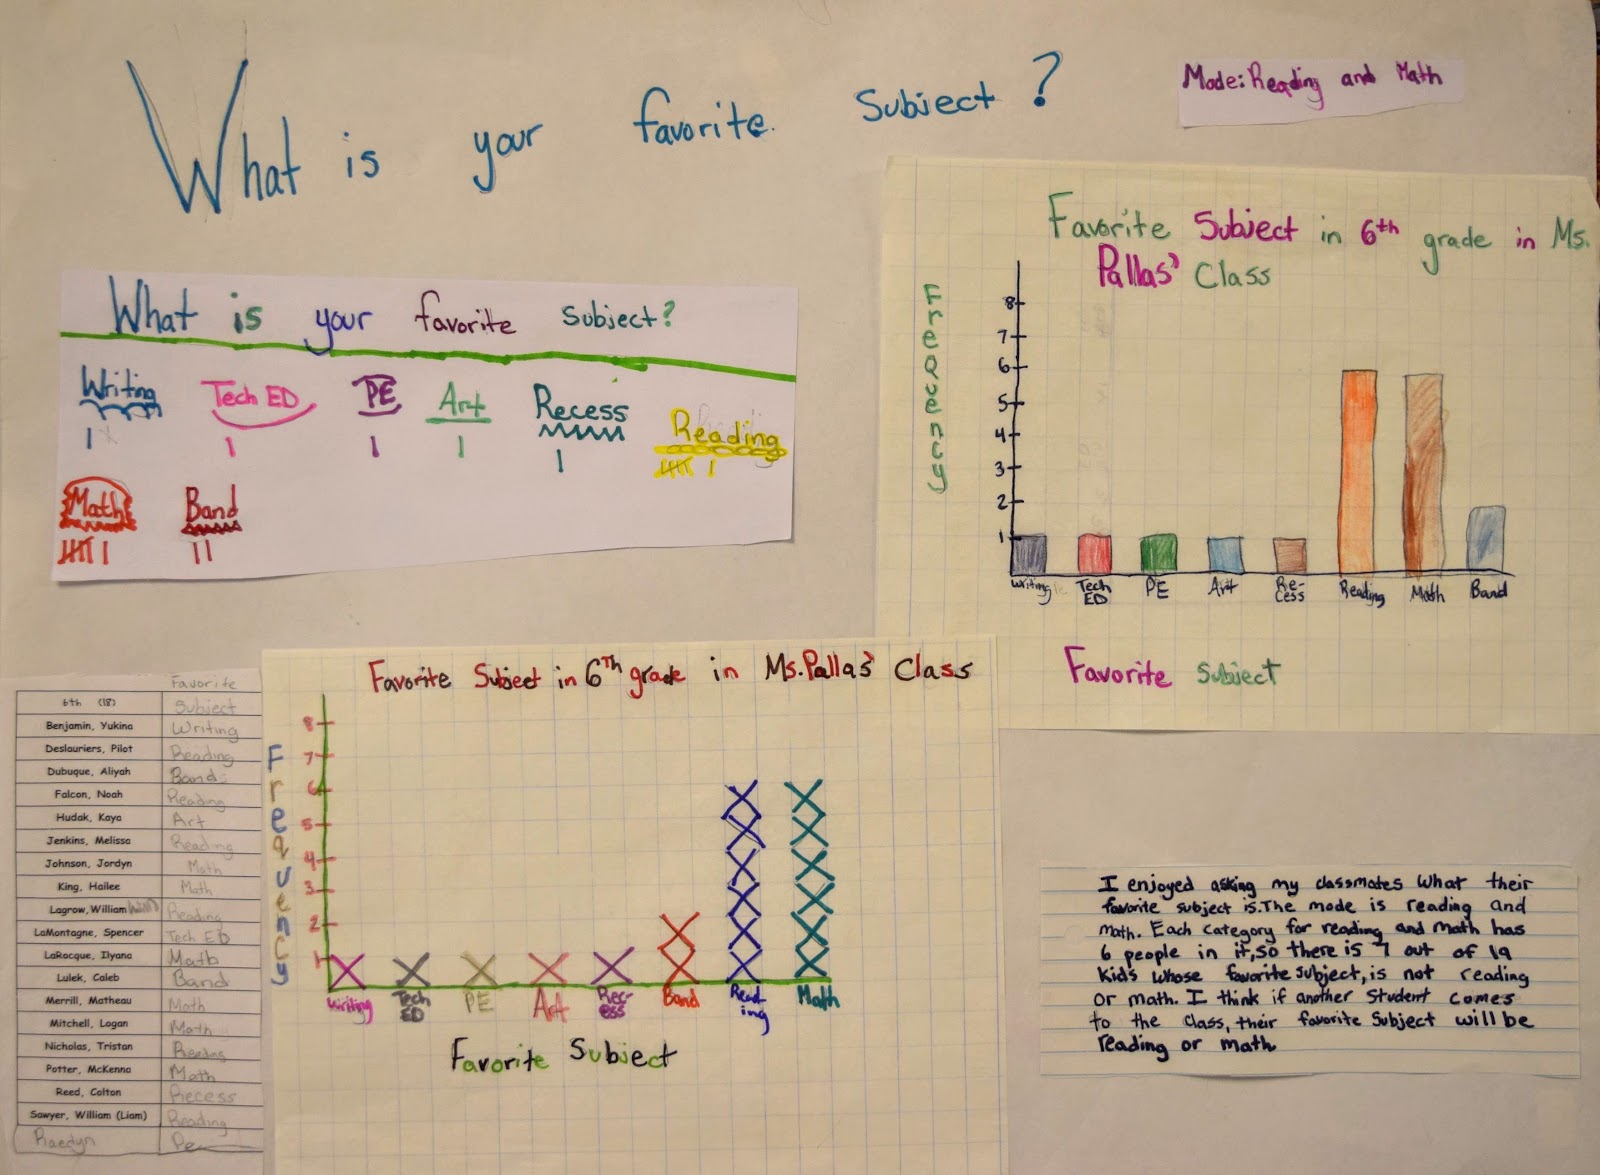 What is your favorite Subject?
Mode: Reading and Math
What is your favorite Subject?
Writing
Tech ED
PE
Art
Recess
Reading
Math
Band
Favorite Subject in 6th grade in Ms.
Pallas' Class
Frequency
8
7
6
5
4
3
2
1
Writing Tech ED PE Art Re-cess Reading Math Band
Favorite Subject
Favorite Subject in 6Th grade in Ms. Pallas' Class
Frequency
8
7
6
5
4
3
2
1
Writing Tech ED PE Art Rec-ess Band Read-ing Math
Favorite Subject
Favorite
6th (18) Subject
Benjamin, Yukina Writing
Deslauriers, Pilot Reading
Dubuque, Aliyah Band
Falcon, Noah Reading
Hudak, Kaya Art
Jenkins, Melissa Reading
Johnson, Jordyn Math
King, Hailee Math
Lagrow, William Reading
LaMontagne, Spencer Tech ED
LaRocque, Ilyana Math
Lulek, Caleb Band
Merrill, Matheau Math
Mitchell, Logan Math
Nicholas, Tristan Reading
Potter, McKenna Math
Reed, Colton Recess
Sawyer, William (Liam) Reading
Raedyn Pe
I enjoyed asking my classmates what their
favorite subject is. The mode is reading and
math. Each category for reading and math has
6 people in it, so there is 7 out of 19
kids whose favorite subject, is not reading
or math. I think if another student comes
to the class, their favorite subject will be
reading or math